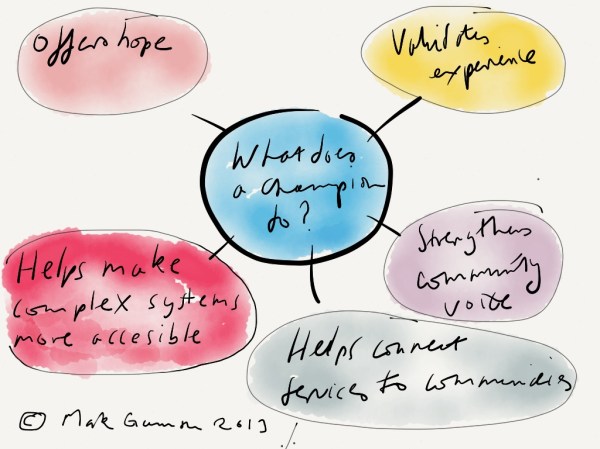 Offers hope
Validates
experience
What does
a champion
do?
Strengthens
community
voice
Helps make
complex systems
more accesible
Helps connect
services to communities
© Mark Gamon 2013